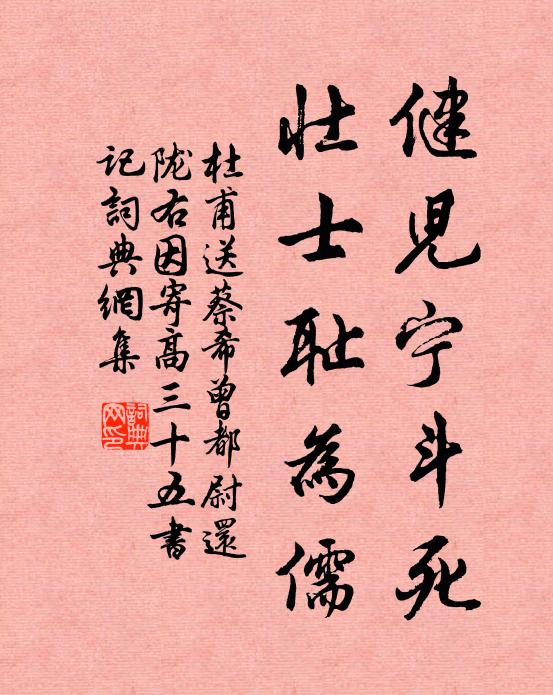 健児宁斗死
壮士耻為儒
杜甫送蔡希曾都尉還
陇右因寄高三十五書
記詞典網集
詞典
网印